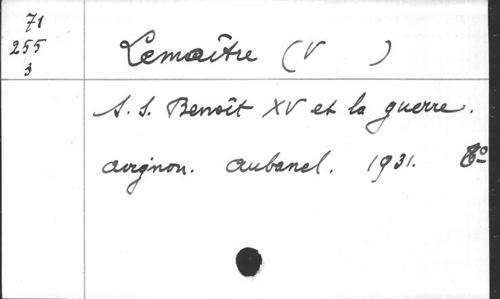 71
255
3
Lemaître (V )
S. S. Benoît XV et la guerre.
Avignon. Aubanel. 1931. 8°